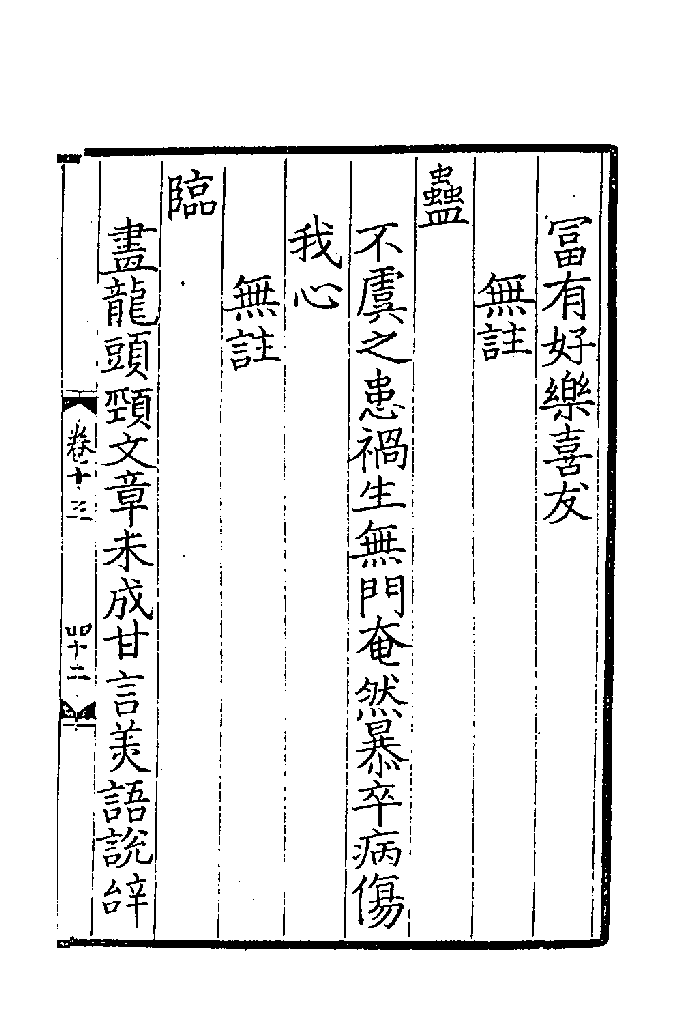 冨有好樂喜友
無註
蠱
不虞之患禍生無門奄然暴卒病傷
我心
無註
臨
畫龍頭頸文章未成甘言美語說辝
卷十三
四十二